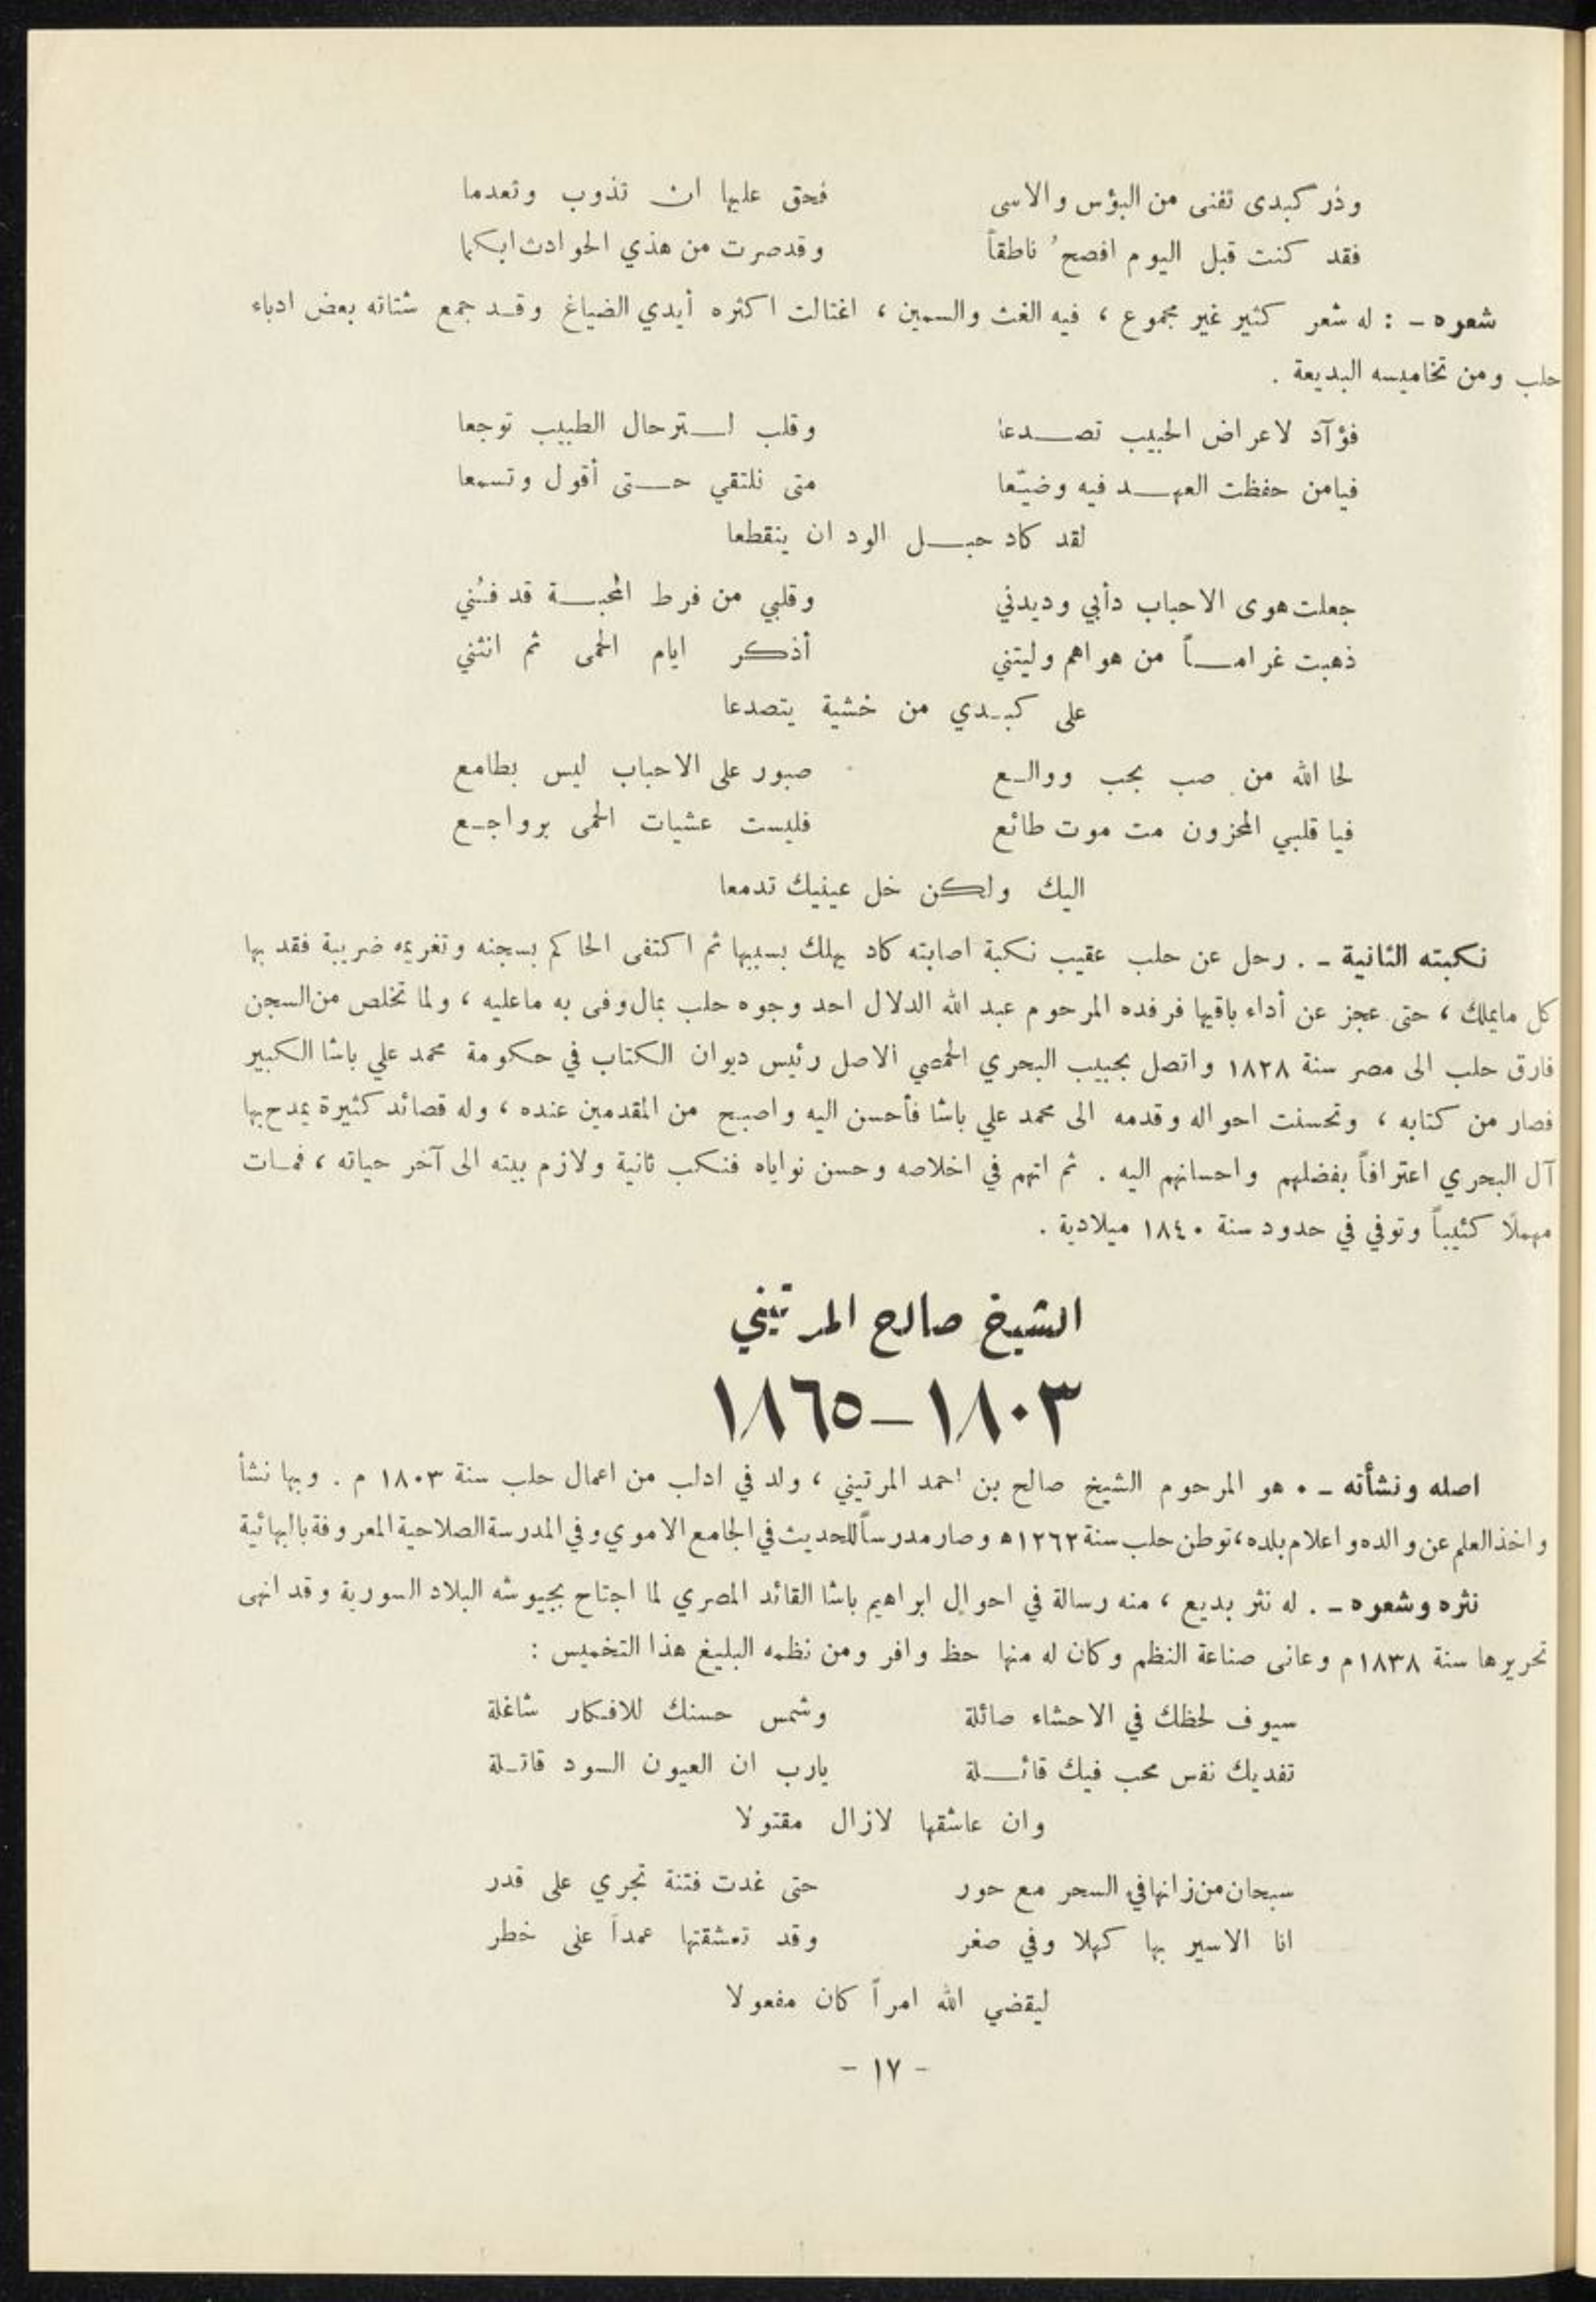 وذر كبدى تفنى من البؤس والاسى فحق عليها ان تذوب وتعدما
فقد كنت قبل اليوم افصحُ ناطقاً وقدصرت من هذي الحوادث ابكما
شعره - : له شعر كثير غير مجموع ، فيه الغث والسمين ، اغتالت اكثره أيدي الضياغ وقد جمع شتاته بعض ادباء
حلب ومن تخاميسه البديعة .
فؤآد لاعراض الحبيب تصدعا وقلب لترحال الطبيب توجعا
فيامن حفظت العهد فيه وضيّعا متى نلتقي حتى أقول وتسمعا
لقد كاد حبل الود ان ينقطعا
جعلت هوى الاحباب دأبي وديدني وقلبي من فرط المحبة قد فني
ذهبت غراماً من هواهم وليتني أذكر ايام الحمى ثم انثني
على كبدي من خشية يتصدعا
لحا الله من صب بحب ووالع صبور على الاحباب ليس بطامع
فيا قلبي المحزون مت موت طائع فليست عشيات الحمى برواجع
اليك ولكن خل عينيك تدمعا
نكبته الثانية - . رحل عن حلب عقيب نكبة اصابته كاد يهلك بسببها ثم اكتفى الحاكم بسجنه وتغريمه ضريبة فقد بها
كل مايملك ، حتى عجز عن أداء باقيها فرفده المرحوم عبد الله الدلال احد وجوه حلب بمال وفى به ماعليه ، ولما تخلص من السجن
فارق حلب الى مصر سنة ١٨٢٨ واتصل بحبيب البحري الحمصي الاصل رئيس ديوان الكتاب في حكومة محمد علي باشا الكبير
فصار من كتابه ، وتحسنت احواله وقدمه الى محمد علي باشا فأحسن اليه واصبح من المقدمين عنده ، وله قصائد كثيرة يمدح بها
آل البحري اعترافاً بفضلهم واحسانهم اليه . ثم اتهم في اخلاصه وحسن نواياه فنكب ثانية ولازم بيته الى آخر حياته ، فمات
مهملًا كئيباً وتوفي في حدود سنة ١٨٤٠ ميلادية .
الشيخ صالح المرتيني
١٨٠٣-١٨٦٥
اصله ونشأته - . هو المرحوم الشيخ صالح بن احمد المرتيني ، ولد في ادلب من اعمال حلب سنة ١٨٠٣ م . وبها نشأ
واخذ العلم عن والده واعلام بلده ، توطن حلب سنة ١٢٦٢ﻫ وصار مدرساً للحديث في الجامع الاموي وفي المدرسة الصلاحية المعروفة بالبهائية
نثره وشعره - . له نثر بديع ، منه رسالة في احوال ابراهيم باشا القائد المصري لما اجتاح بجيوشه البلاد السورية وقد انهى
تحريرها سنة ١٨٣٨م وعانى صناعة النظم وكان له منها حظ وافر ومن نظمه البليغ هذا التخميس :
سيوف لحظك في الاحشاء صائلة وشمس حسنك للافكار شاغلة
تفديك نفس محب فيك قائلة يارب ان العيون السود قاتلة
وان عاشقها لازال مقتولا
سبحان من زانها في السحر مع حور حتى غدت فتنة تجري على قدر
انا الاسير بها كهلا وفي صغر وقد تعشقتها عمداً على خطر
ليقضي الله امراً كان مفعولا
- ١٧ -